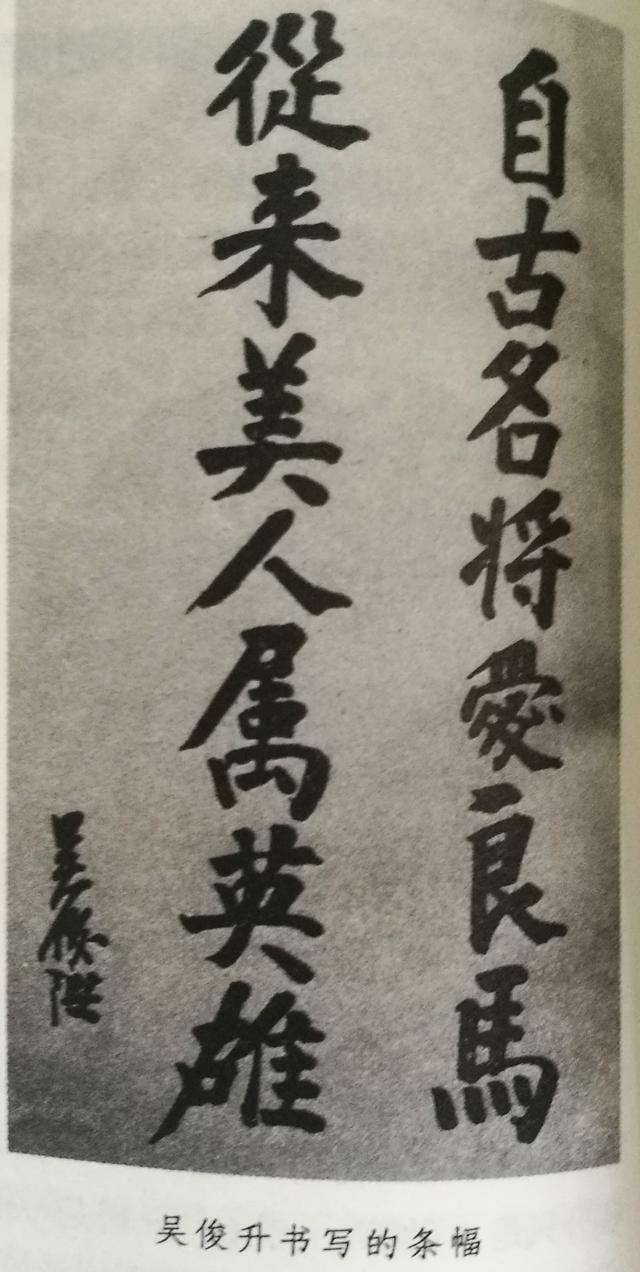 自古名将愛良馬
從来美人属英雄
吴俊陞
吴俊升书写的条幅